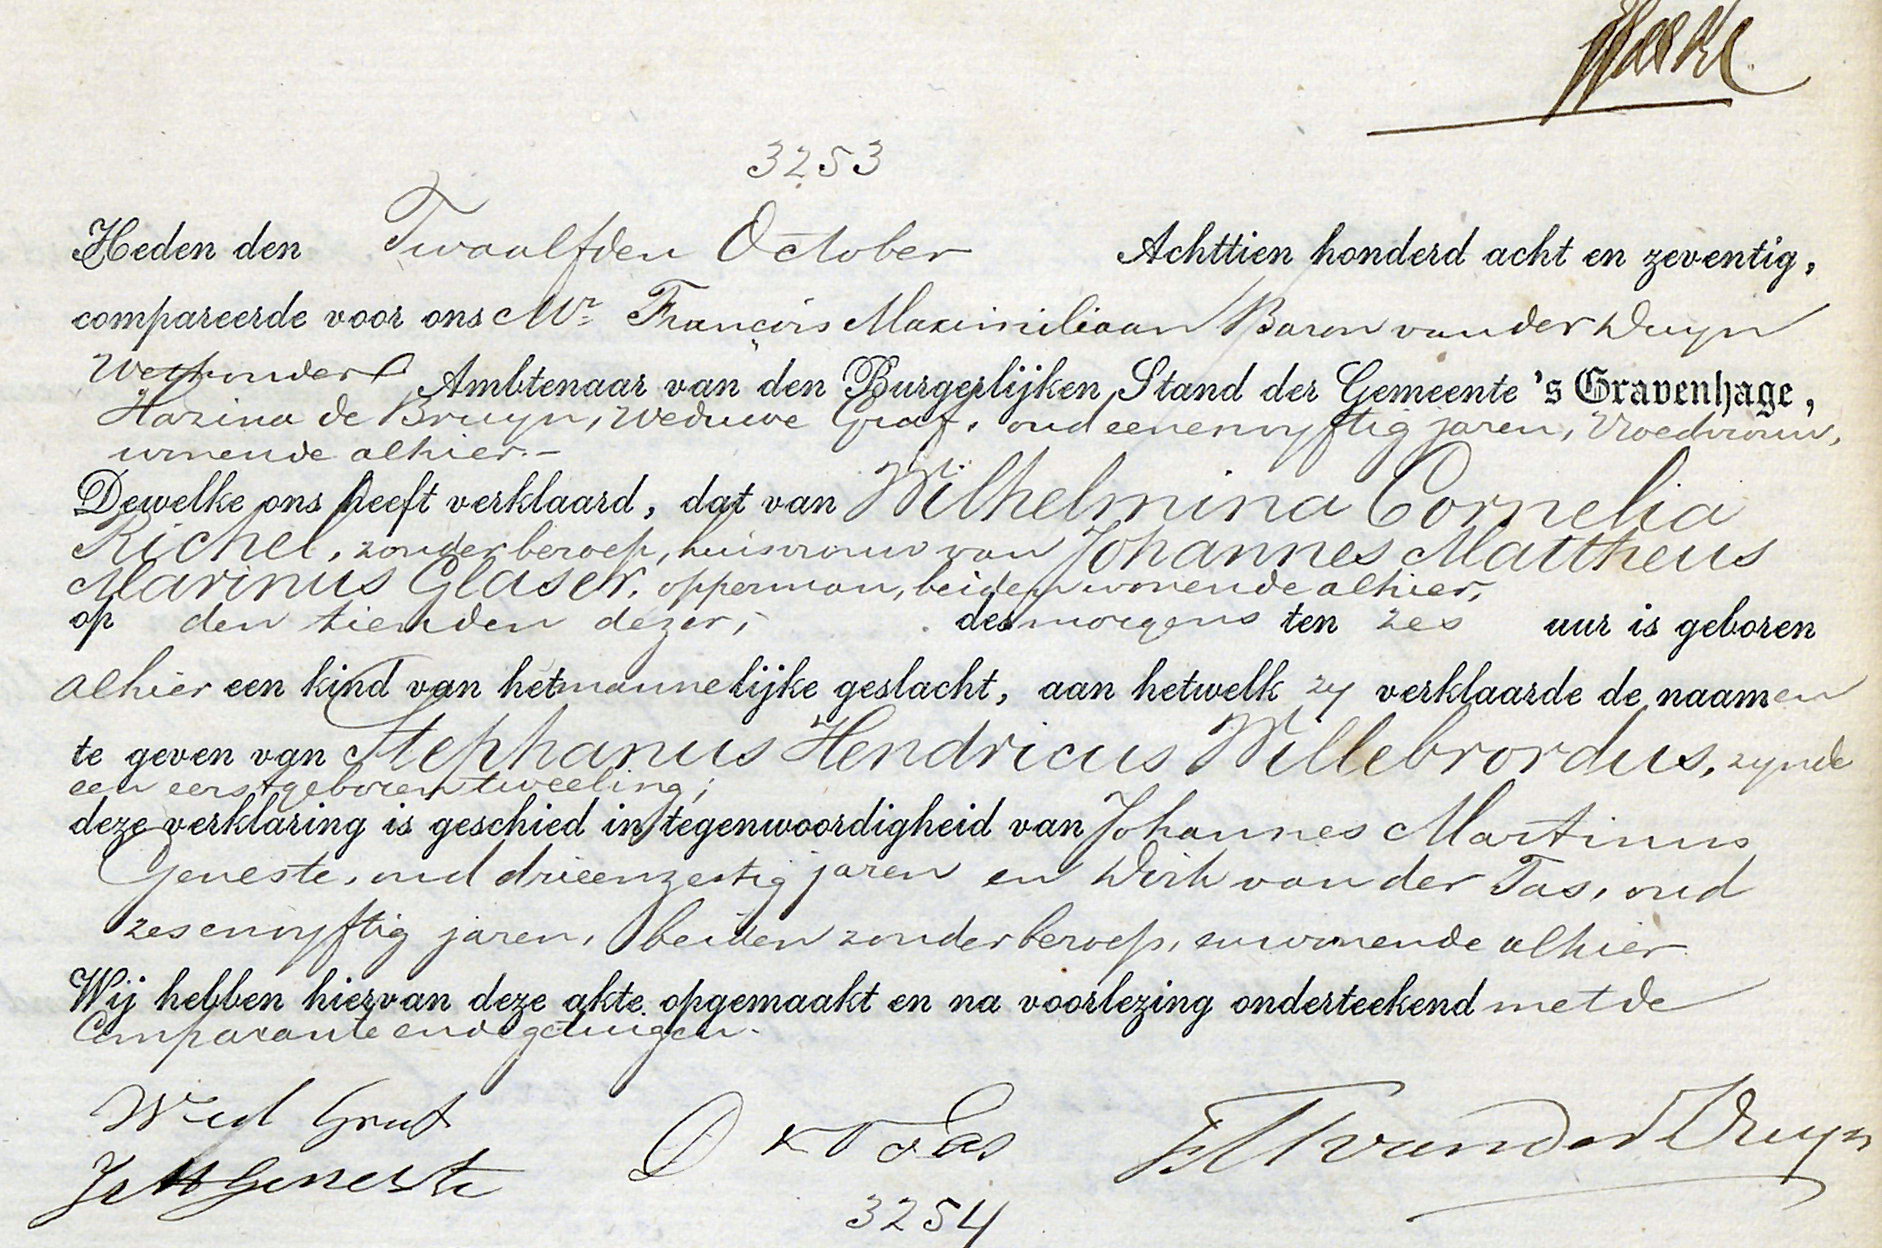 3253
Heden den Twaalfden October Achttien honderd acht en zeventig,
compareerde voor ons Mr. François Maximiliaan Baron van der Duyn
Wethouder Ambtenaar van den Burgerlijken Stand der Gemeente 's Gravenhage,
Hazina de Bruyn, Weduwe Graf, oud eenenvyftig jaren, Vroedvrouw,
wonende alhier.-
Dewelke ons heeft verklaard, dat van Wilhelmina Cornelia
Richel, zonder beroep, huisvrouw van Johannes Mattheus
Marinus Glaser, opperman, beiden wonende alhier,
op den tienden dezer, des morgens ten zes uur is geboren
alhier een kind van het mannelijke geslacht, aan hetwelk zy verklaarde de naamen
te geven van Stephanus Hendricus Willebrordus, zynde
een eerstgeboren tweeling;
deze verklaring is geschied in tegenwoordigheid van Johannes Martinus
Geneste, oud drieenzestig jaren en Dirk van der Tas, oud
zesenvyftig jaren, beiden zonder beroep, en wonende alhier
Wij hebben hiervan deze akte opgemaakt en na voorlezing onderteekend met de
Comparante en de getuigen.
Wed Graf
J M Geneste
D v d Tas
F M van der Duyn
3254